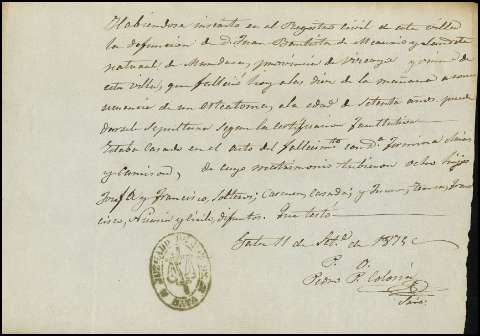 Habiendose inscrito en el Registro Civil de esta villa
la defuncion de D. Juan Bautista de Mencio y
natural de Mundaca, provincia de Vizcaya y vecino de
esta villa, que falleció hoy a las diez de la mañana a conse
cuencia de un Osteatoma, a la edad de setenta años puede
darsele sepultura segun la certificacion facultativa
Estaba casado en el acto del fallecimto con Da Fermina
y de cuyo matrimonio tubieron ocho hijos
José A y Francisco, solteros; Carmen, casada; y Fran
cisco, y difuntos. Que testó
11 de Set.e de 1875
P. O.
Pedro P. Colosia
Srio
JUZGADO